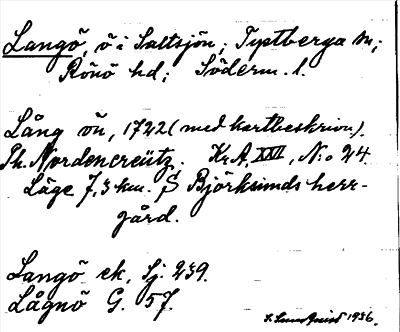 Langö, ö i Saltsjön; Tystberga sn;
Rönö hd; Söderm. l.
Lång ön, 1722 (med kartbeskrivn).
Ph. Nordencreütz. Kr.A, XXVI, N:o 24.
Läge 7,3 km. S Björksunds herr-
gård.
Langö ek. Sj. 239.
Lågnö G. 57.
1936.